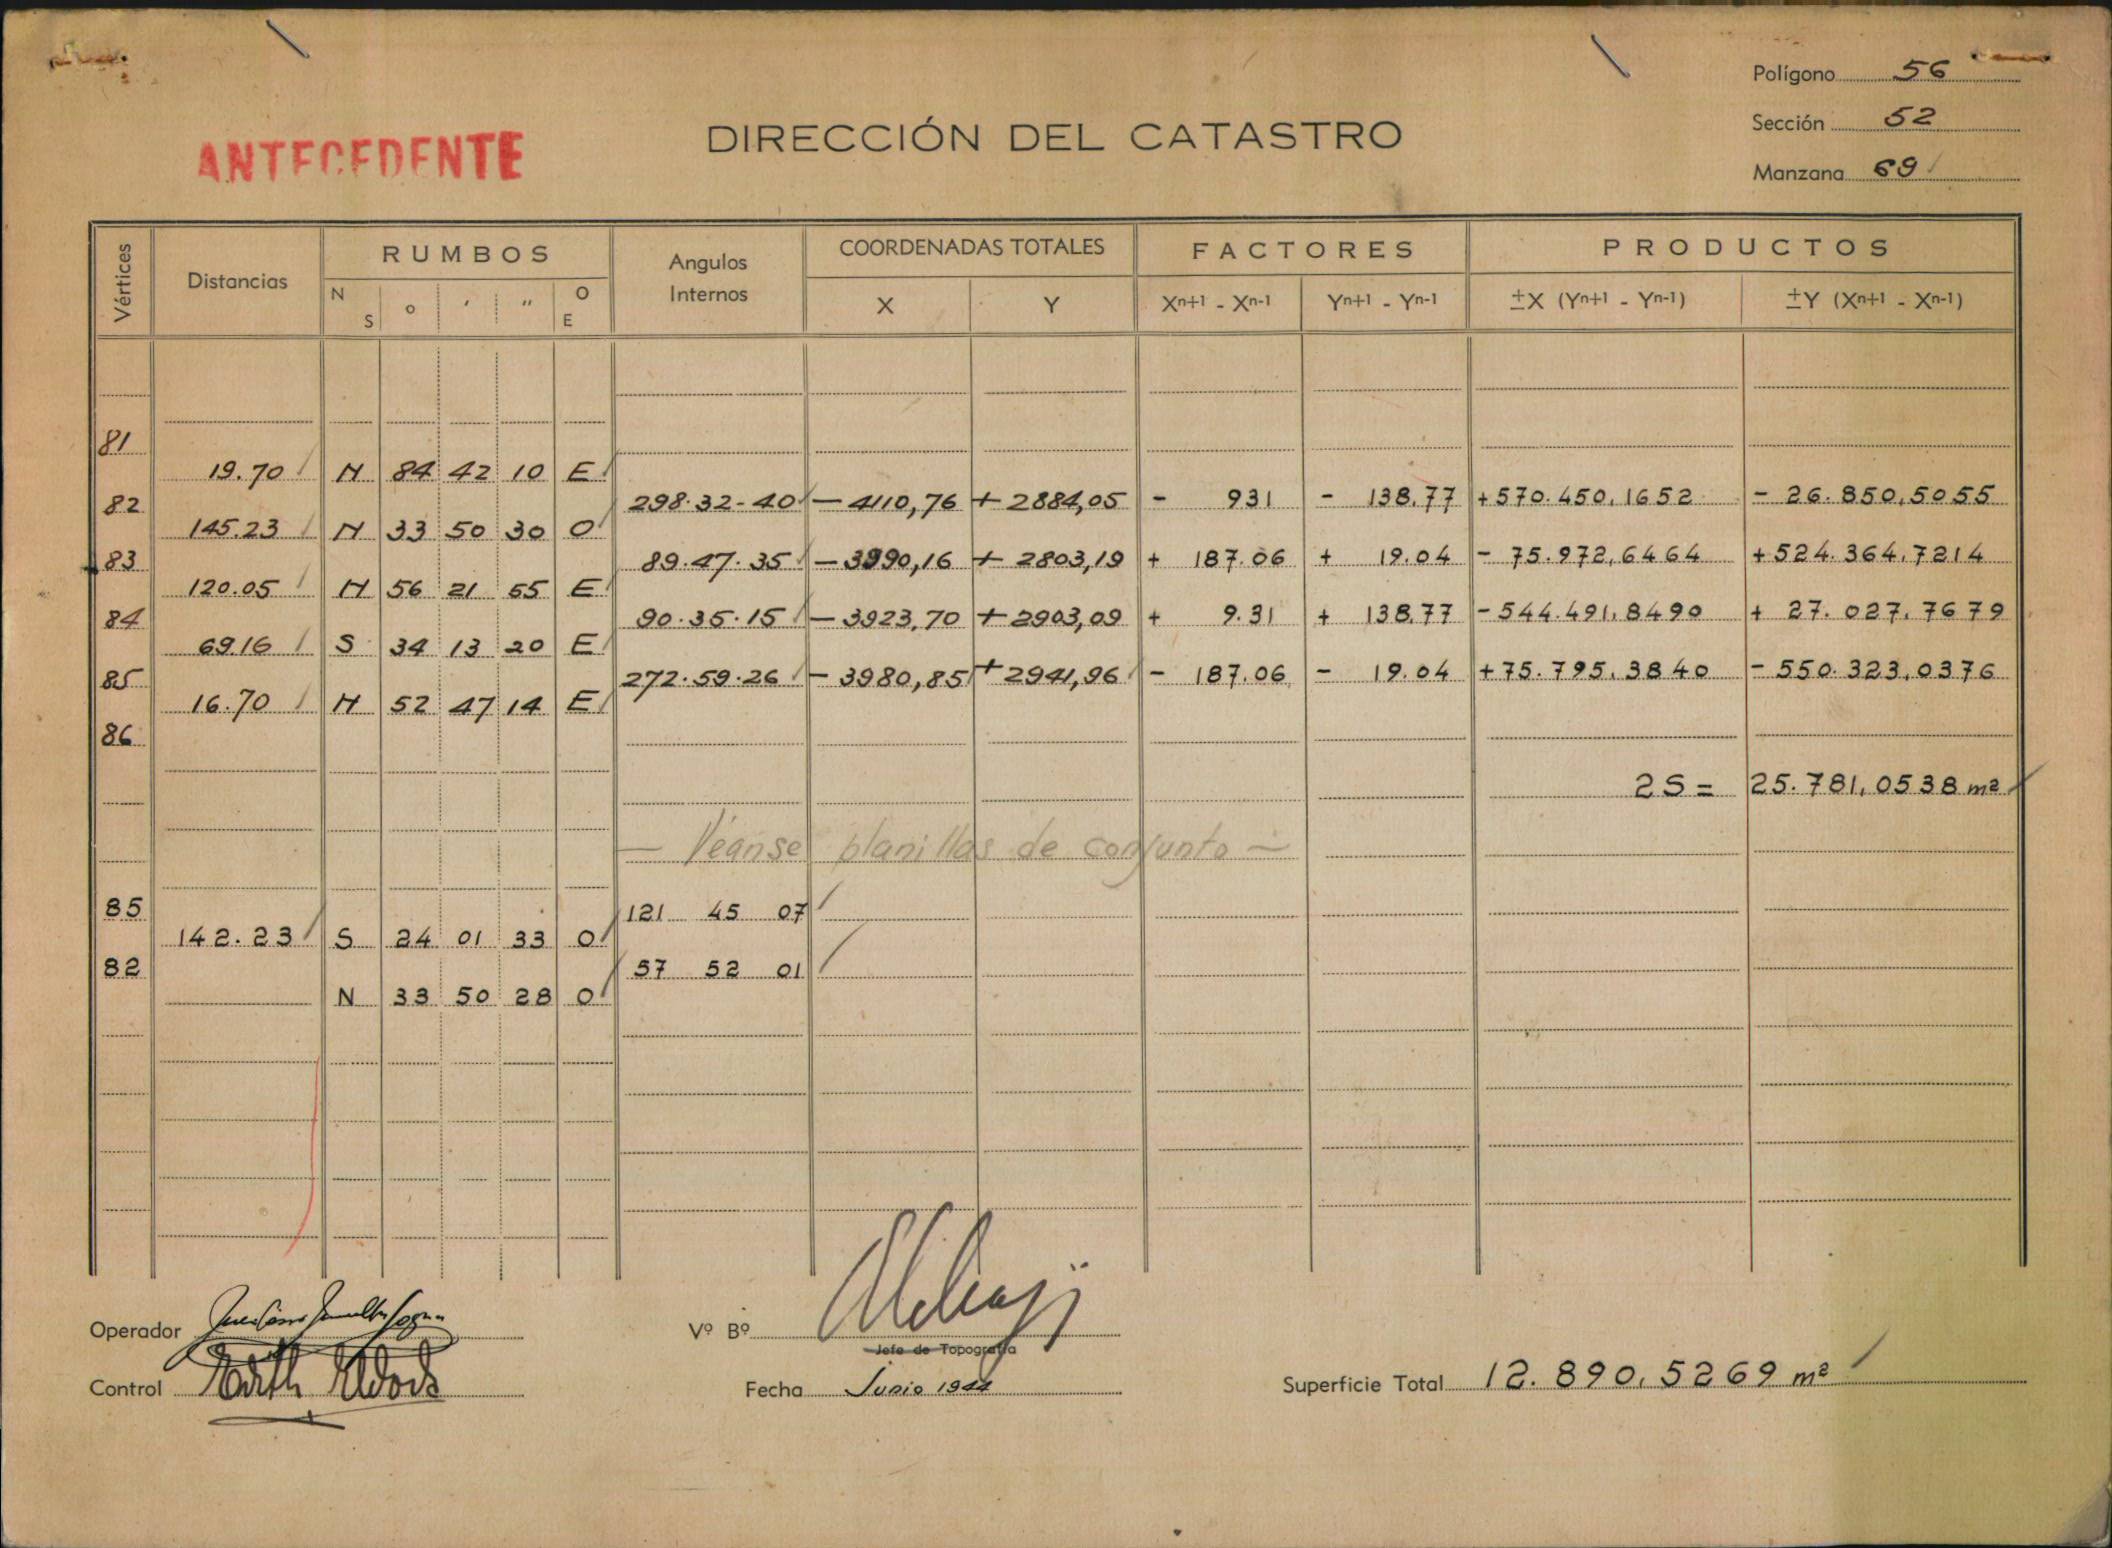 Polígono 56
Sección 52
Manzana 69
ANTECEDENTE
DIRECCIÓN DEL CATASTRO
Vértices Distancias RUMBOS N S o ′ ″ O E Angulos Internos COORDENADAS TOTALES X Y FACTORES Xn+1 - Xn-1 Yn+1 - Yn-1 PRODUCTOS ±X (Yn+1 - Yn-1) ±Y (Xn+1 - Xn-1)
81
19.70 N 84 42 10 E
82 298.32-40 - 4110,76 + 2884,05 - 931 - 138.77 +570.450,1652 - 26.850,5055
145.23 N 33 50 30 O
83 89.47.35 - 3990,16 + 2803,19 + 187.06 + 19.04 - 75.972,6464 +524.364,7214
120.05 N 56 21 55 E
84 90.35.15 - 3923,70 + 2903,09 + 9.31 + 138.77 - 544.491,8490 + 27.027,7679
69.16 S 34 13 20 E
85 272.59.26 - 3980,85 + 2941,96 - 187.06 - 19.04 +75.795,3840 - 550.323,0376
16.70 N 52 47 14 E
86
2S = 25.781,0538 m²
— Véanse planillas de conjunto —
85 121 45 07
142.23 S 24 01 33 O
82 57 52 01
N 33 50 28 O
Operador
Vº Bº
Jefe de Topografía
Control
Fecha Junio 1944
Superficie Total 12.890,5269 m²